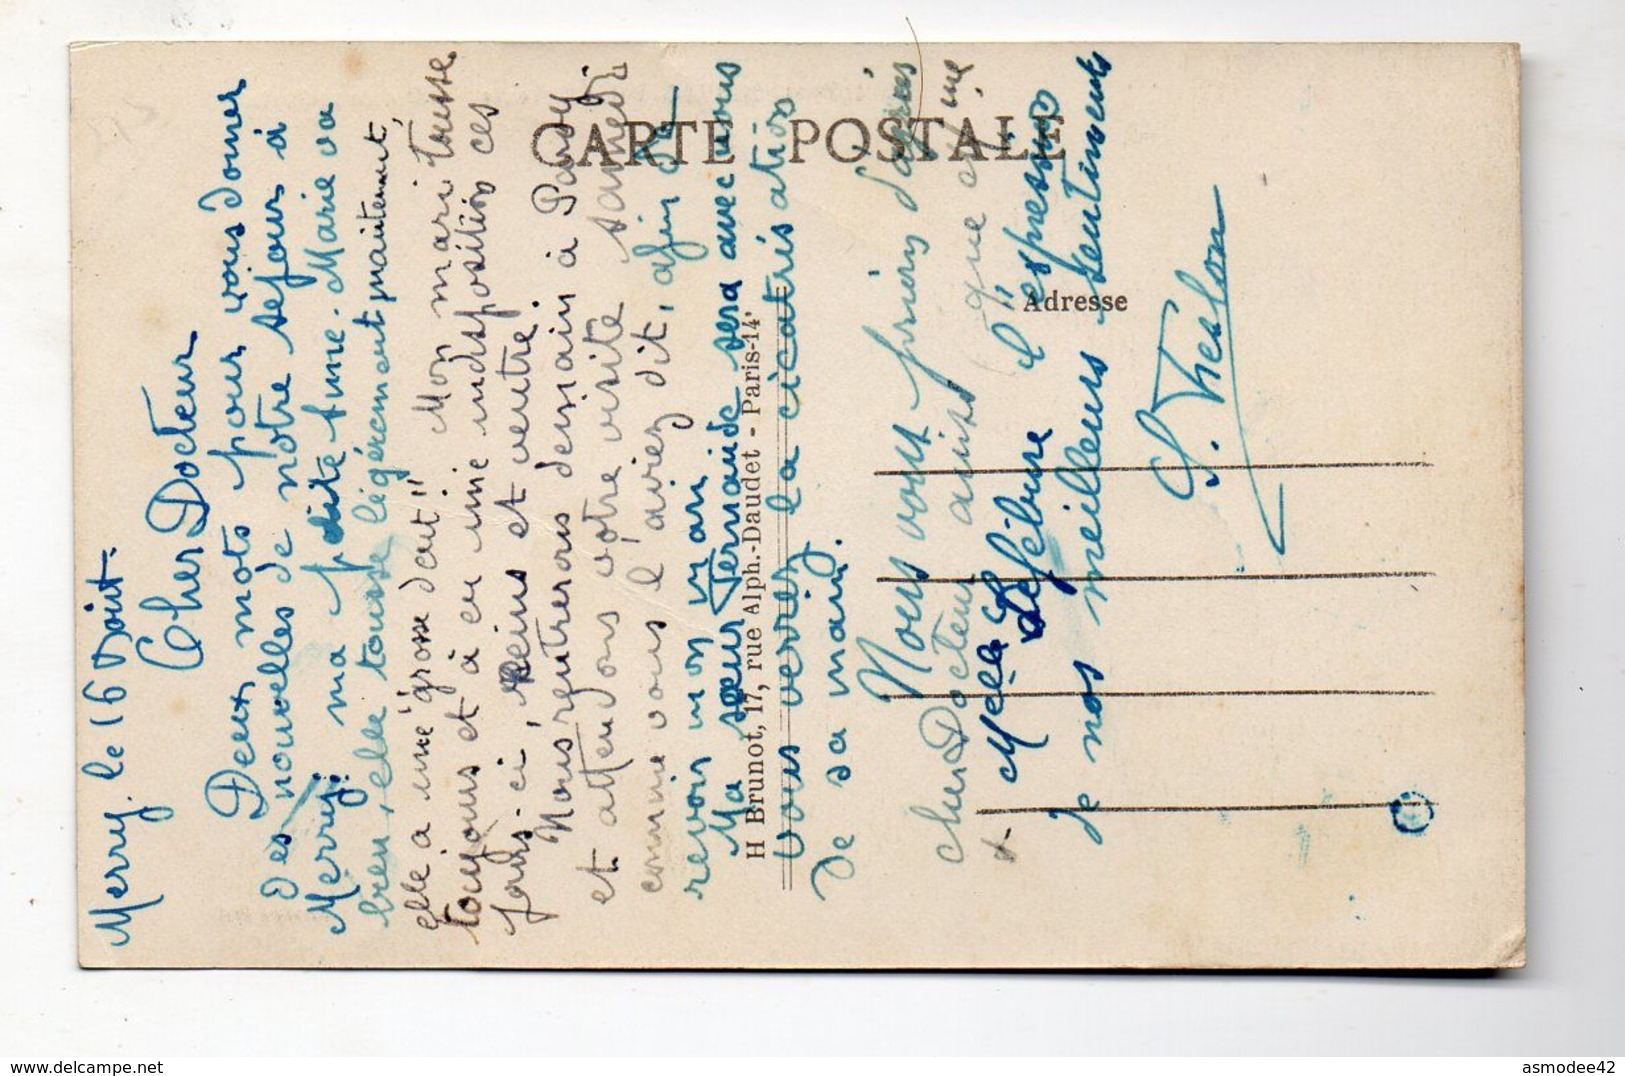 Merry. le 16 Août.
Cher Docteur
Deux mots pour vous donner
des nouvelles de notre séjour à
Merry: ma petite Anne-Marie va
bien, elle tousse légèrement maintenant,
elle a une "grosse dent" Mon mari tousse
toujours et à eu une indisposition ces
jours-ci, reins et ventre.
Nous rentrerons demain à Passy
et attendons votre visite samedi
comme vous l'aviez dit, afin de
revoir mon mari
Ma seur Fernande sera avec nous
vous verrez la cicatrisation
de sa main.
Nous vous prions d'agréer
cher Docteur ainsi que Mme
& Melle Lefébure l'expression
de nos meilleurs sentiments
S. Theslon
CARTE POSTALE
Adresse
H Brunot, 17, rue Alph.-Daudet - Paris-14e
asmodee42